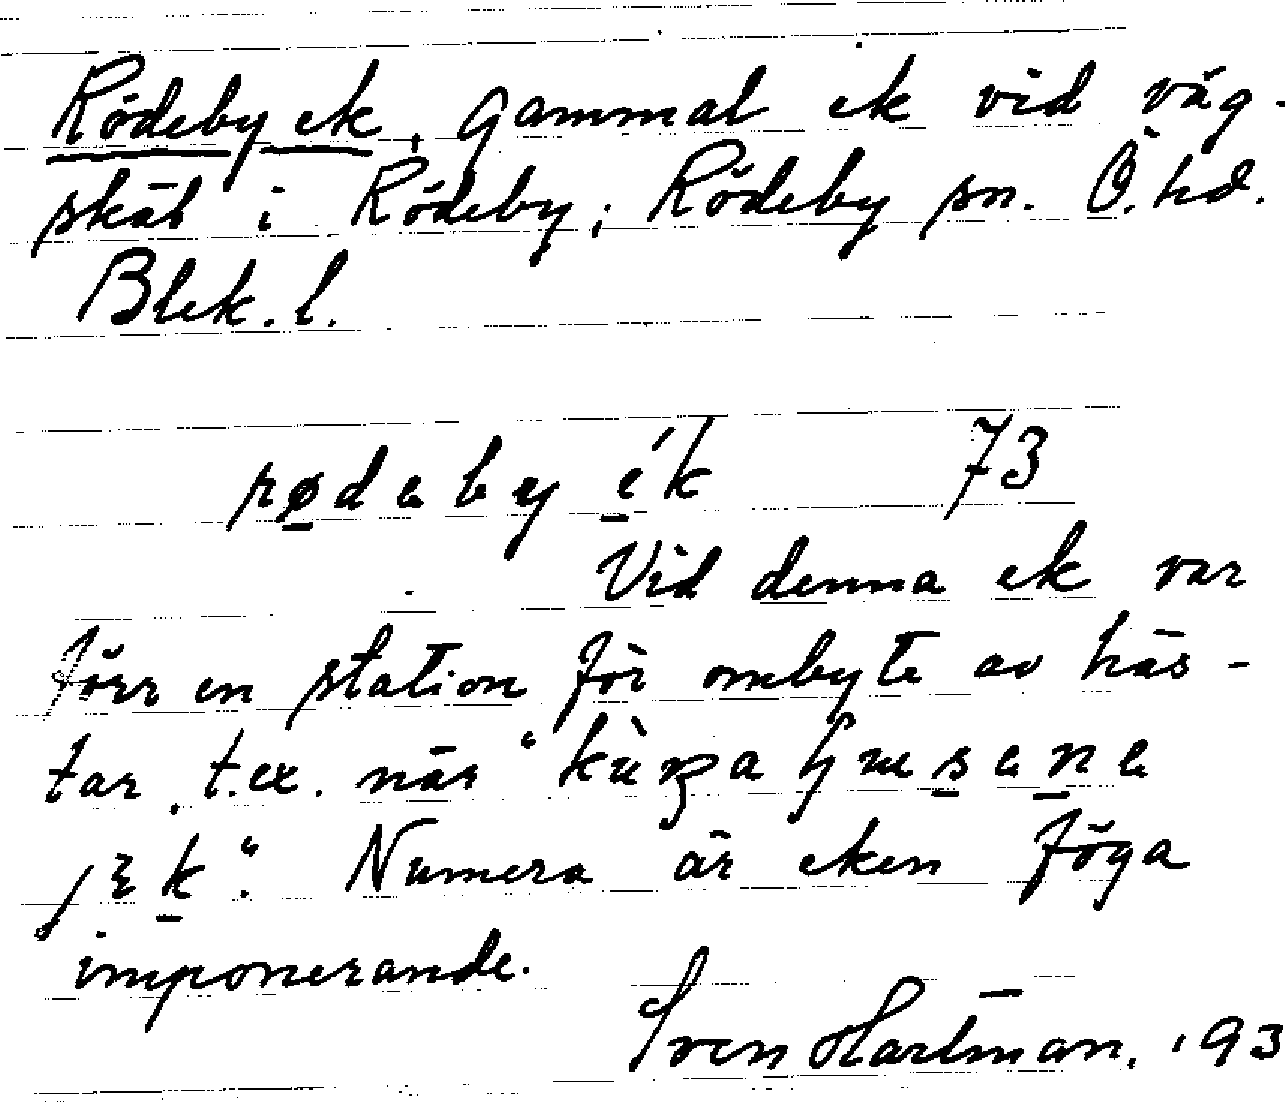 Rödeby ek, gammal ek vid väg-
skäl i Rödeby, Rödeby sn. Ö. hd.
Blek. l.
rødeby ék 73
Vid denna ek var
förr en station för ombyte av häs-
tar, t.ex. när "
Numera är eken föga
imponerande.
Sven Hartman, 193